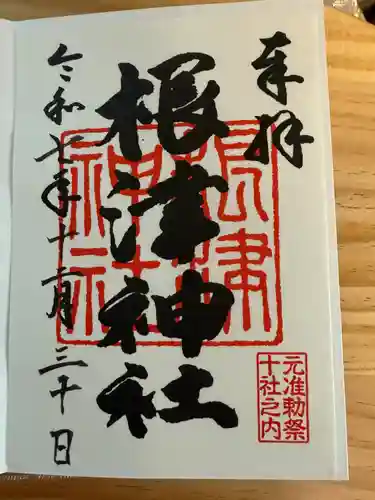 奉拝
根津神社
根津神社
令和七年十二月三十日
元准勅祭
十社之内